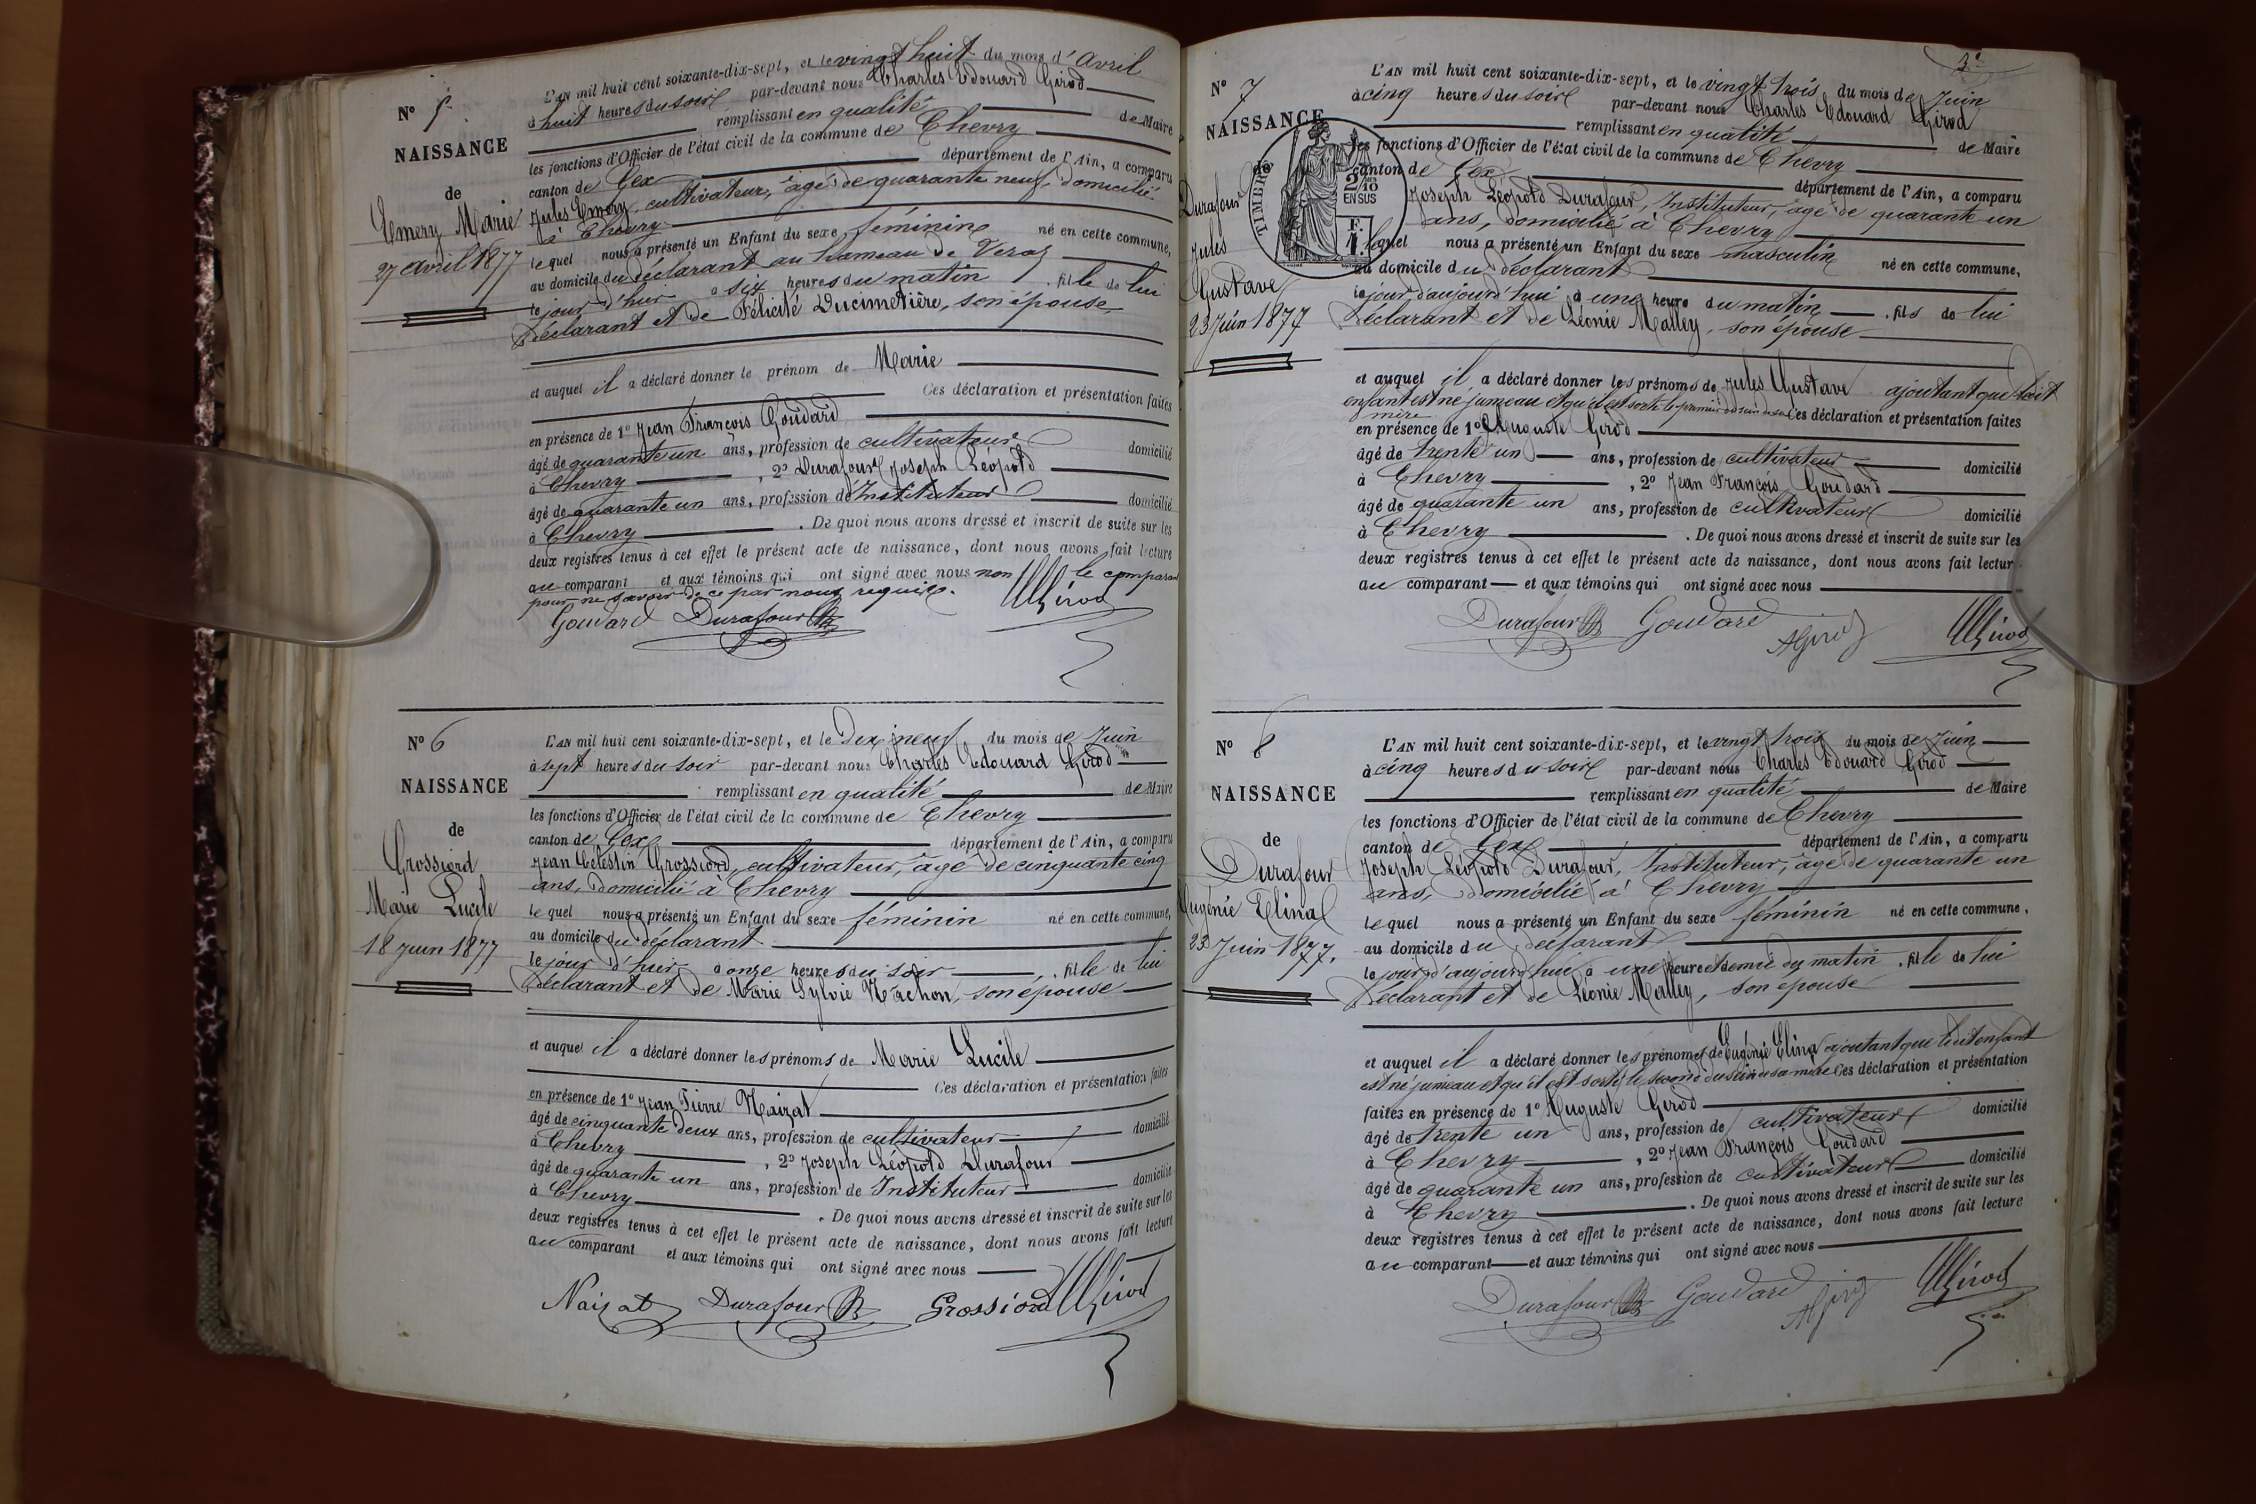 L'AN mil huit cent soixante-dix-sept, et le vingt huit du mois d'Avril
à huit heures du soir par-devant nous Charles Edouard Girod
remplissant en qualité de Maire
les fonctions d'Officier de l'état civil de la commune de Chevry
canton de Gex département de l'Ain, a comparu
Jules Emery, cultivateur, âgé de quarante neuf, domicilié
à Chevry
lequel nous a présenté un Enfant du sexe féminin né en cette commune,
au domicile du déclarant au hameau de Veraz
le jour d'hier à six heures du matin, fille de lui
déclarant et de Félicité Ducimetière, son épouse
et auquel il a déclaré donner le prénom de Marie
Ces déclaration et présentation faites
en présence de 1º Jean François Goudard
âgé de quarante un ans, profession de cultivateur domicilié
à Chevry, 2º Durafour Joseph Léopold
âgé de quarante un ans, profession d'Instituteur domicilié
à Chevry. De quoi nous avons dressé et inscrit de suite sur les
deux registres tenus à cet effet le présent acte de naissance, dont nous avons fait lecture
au comparant et aux témoins qui ont signé avec nous non le comparant
pour ne savoir de ce par nous requis.
Goudard Durafour Girod
Nº 5
NAISSANCE
de
Emery Marie
27 avril 1877
Nº 6
NAISSANCE
de
Grossiord
Marie Lucile
18 juin 1877
L'AN mil huit cent soixante-dix-sept, et le Dix neuf du mois de Juin
à sept heures du soir par-devant nous Charles Edouard Girod
remplissant en qualité de Maire
les fonctions d'Officier de l'état civil de la commune de Chevry
canton de Gex département de l'Ain, a comparu
Jean Célestin Grossiord, cultivateur, âgé de cinquante cinq
ans, domicilié à Chevry
lequel nous a présenté un Enfant du sexe féminin né en cette commune,
au domicile du déclarant
le jour d'hier à onze heures du soir, fille de lui
déclarant et de Marie Sylvie Nachon, son épouse
et auquel il a déclaré donner les prénoms de Marie Lucile
Ces déclaration et présentation faites
en présence de 1º Jean Pierre Naizat
âgé de cinquante deux ans, profession de cultivateur domicilié
à Chevry, 2º Joseph Léopold Durafour
âgé de quarante un ans, profession de Instituteur domicilié
à Chevry. De quoi nous avons dressé et inscrit de suite sur les
deux registres tenus à cet effet le présent acte de naissance, dont nous avons fait lecture
au comparant et aux témoins qui ont signé avec nous
Naizat Durafour Grossiord Girod
3e
Nº 7
NAISSANCE
de
Durafour
Jules
Gustave
23 Juin 1877
TIMBRE
2/10
EN SUS
L'AN mil huit cent soixante-dix-sept, et le vingt trois du mois de Juin
à cinq heures du soir par-devant nous Charles Edouard Girod
remplissant en qualité de Maire
les fonctions d'Officier de l'état civil de la commune de Chevry
canton de Gex département de l'Ain, a comparu
Joseph Léopold Durafour, Instituteur, âgé de quarante un
ans, domicilié à Chevry
lequel nous a présenté un Enfant du sexe masculin né en cette commune,
au domicile du déclarant
le jour d'aujourd'hui à une heure du matin, fils de lui
déclarant et de Léonie Malley, son épouse
et auquel il a déclaré donner les prénoms de Jules Gustave ajoutant que ledit
enfant est né jumeau et qu'il est sorti le premier du sein de sa Ces déclaration et présentation faites
mère
en présence de 1º Auguste Girod
âgé de trente un ans, profession de cultivateur domicilié
à Chevry, 2º Jean François Goudard
âgé de quarante un ans, profession de cultivateur domicilié
à Chevry. De quoi nous avons dressé et inscrit de suite sur les
deux registres tenus à cet effet le présent acte de naissance, dont nous avons fait lectur
au comparant et aux témoins qui ont signé avec nous
Durafour Goudard AGirod Girod
Nº 8
NAISSANCE
de
Durafour
Eugénie Elina
23 Juin 1877.
L'AN mil huit cent soixante-dix-sept, et le vingt trois du mois de Juin
à cinq heures du soir par-devant nous Charles Edouard Girod
remplissant en qualité de Maire
les fonctions d'Officier de l'état civil de la commune de Chevry
canton de Gex département de l'Ain, a comparu
Joseph Léopold Durafour, Instituteur, âgé de quarante un
ans, domicilié à Chevry
lequel nous a présenté un Enfant du sexe féminin né en cette commune,
au domicile du déclarant
le jour d'aujourd'hui à une heure et demie du matin, fille de lui
déclarant et de Léonie Malley, son épouse
et auquel il a déclaré donner les prénoms de Eugénie Elina ajoutant que ledit enfant
est né jumeau et qu'il est sorti le second du sein de sa mère Ces déclaration et présentation
faites en présence de 1º Auguste Girod
âgé de trente un ans, profession de cultivateur domicilié
à Chevry, 2º Jean François Goudard
âgé de quarante un ans, profession de cultivateur domicilié
à Chevry. De quoi nous avons dressé et inscrit de suite sur les
deux registres tenus à cet effet le présent acte de naissance, dont nous avons fait lecture
au comparant et aux témoins qui ont signé avec nous
Durafour Goudard AGirod Girod